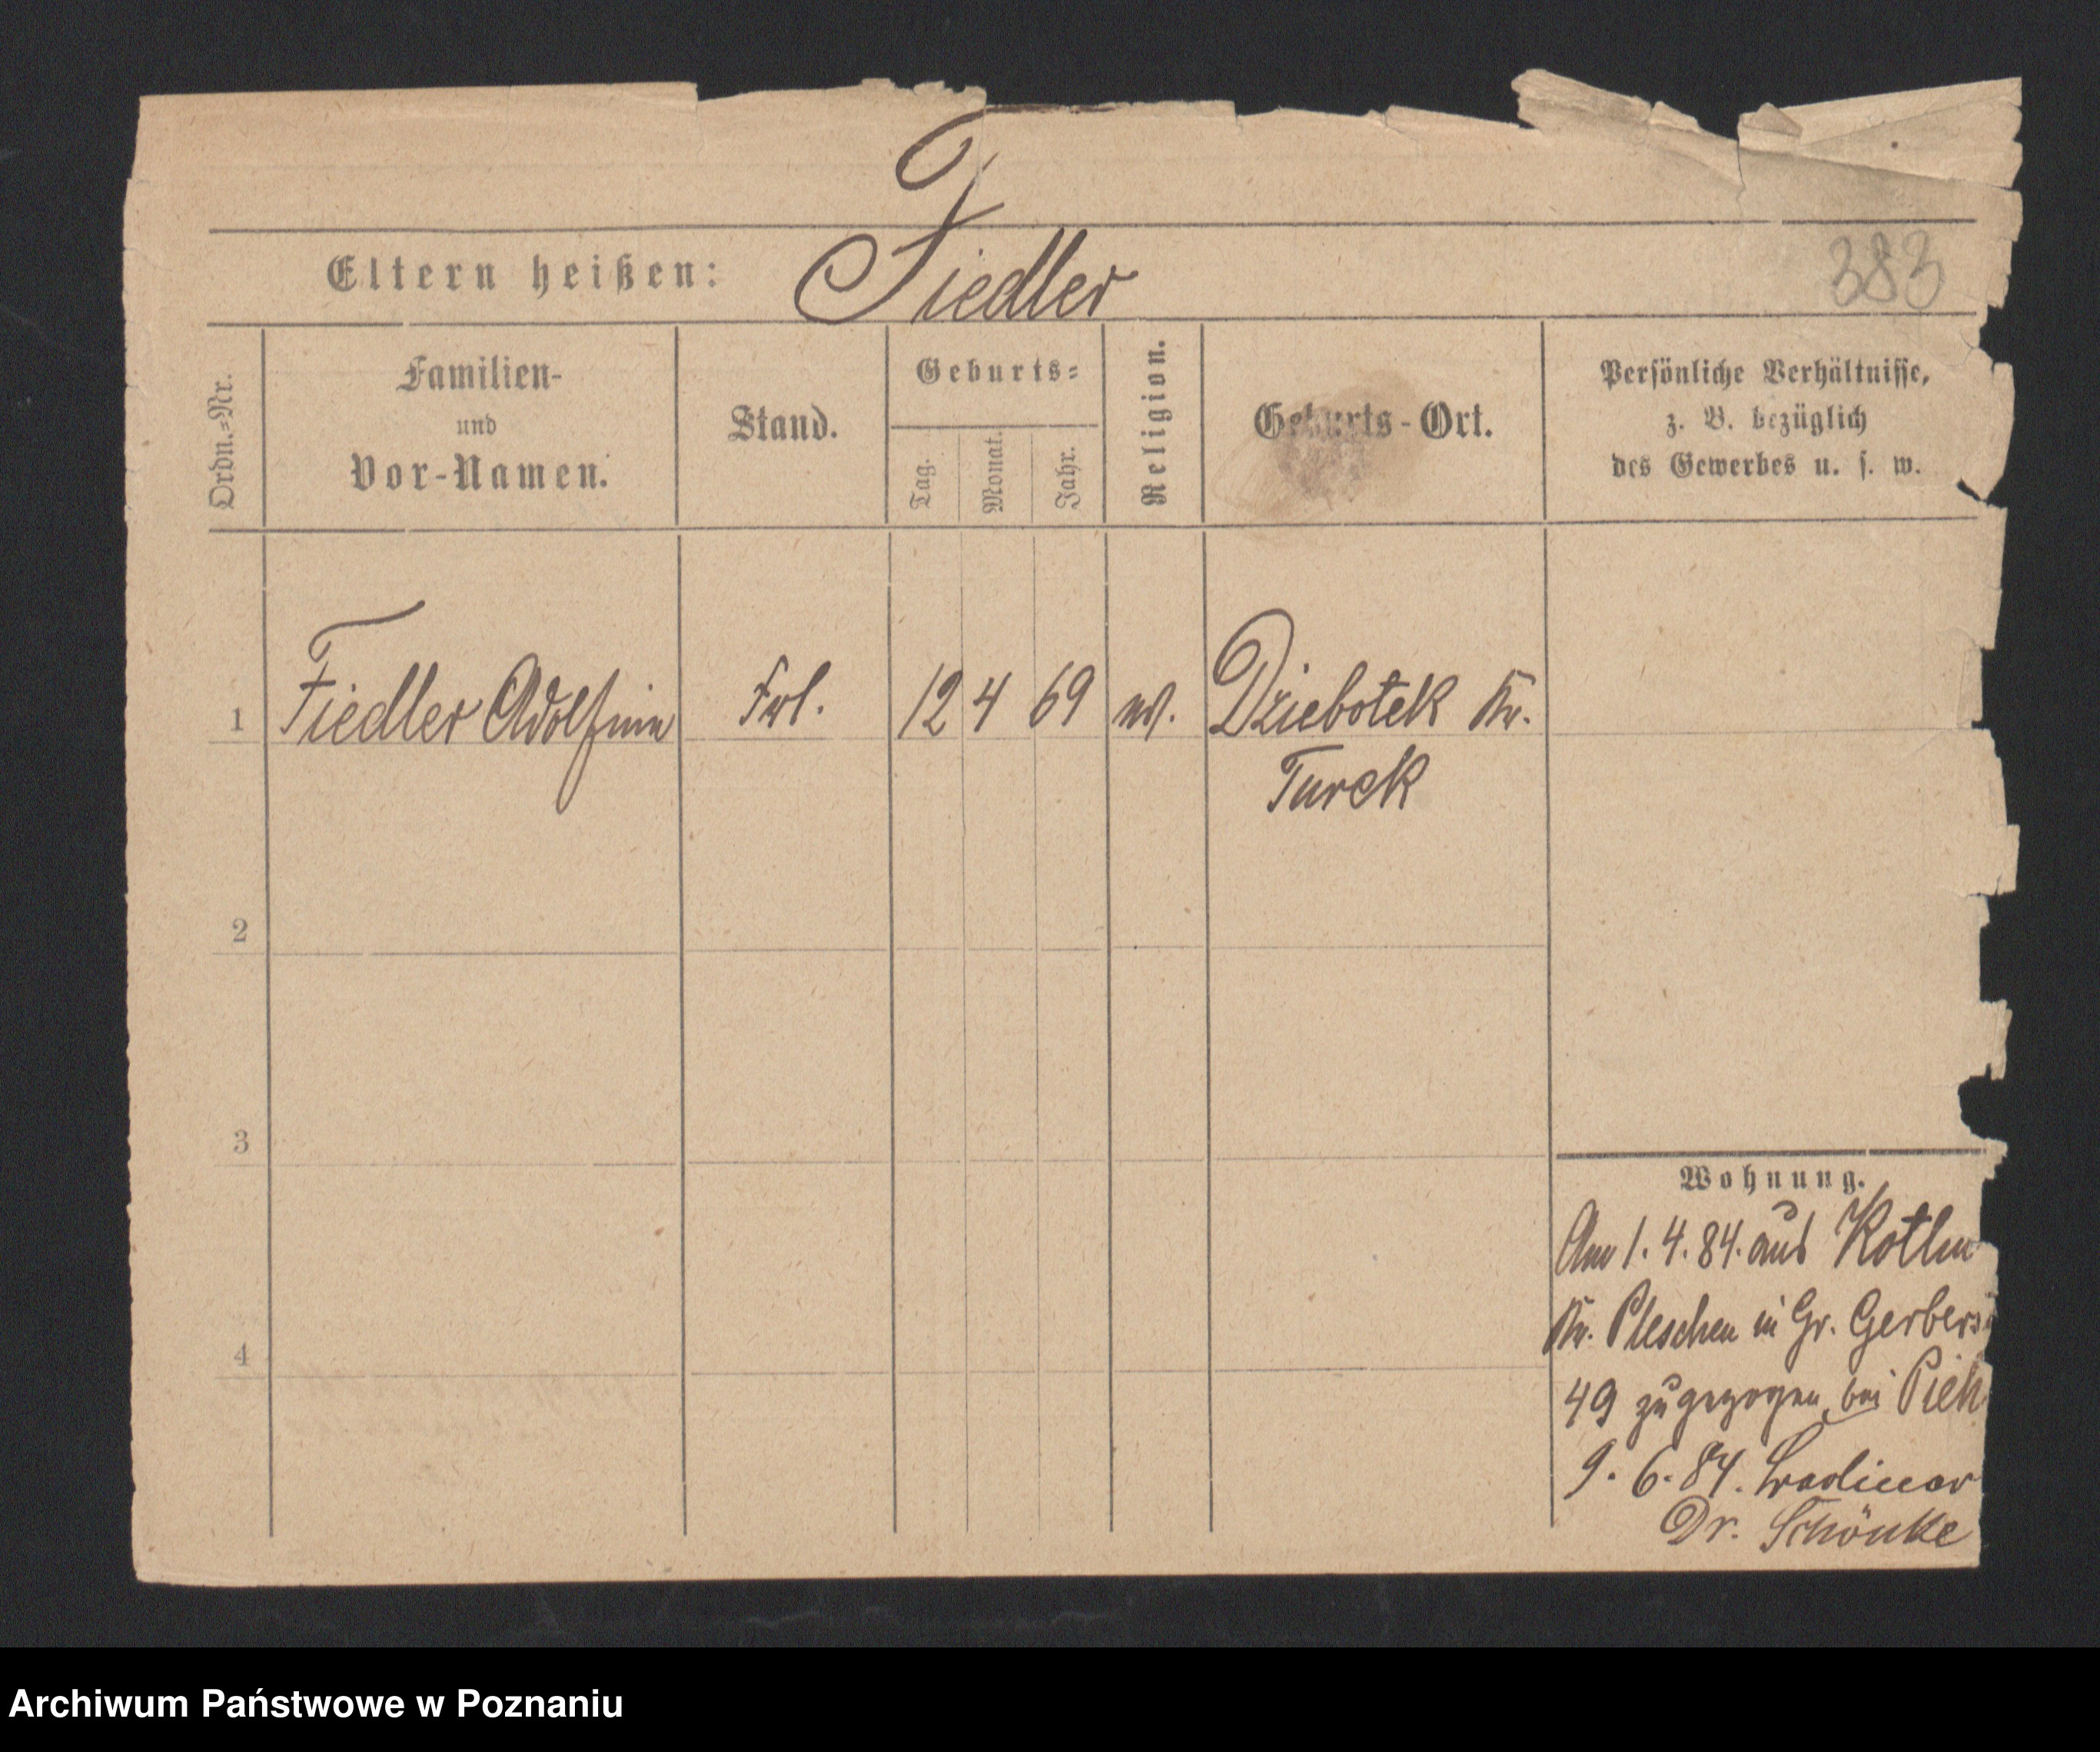 Fiedler
Eltern heißen:
383
Ordn.=Nr.
Familien-
und
Vor-Namen.
Stand.
Geburts=
Tag.
Monat.
Jahr.
Religion.
Geburts-Ort.
Persönliche Verhältnisse,
z. B. bezüglich
des Gewerbes u. s. w.
1 Fiedler Adolfine Frl. 12 4 69 ev. Dziebotek Kr.
Turek
2
3
4
Wohnung.
Am 1. 4. 84. aus Kotlin
Kr. Pleschen in Gr. Gerberst
49 zugezogen bei
9. 6. 84.
Dr. Schönke
Archiwum Państwowe w Poznaniu